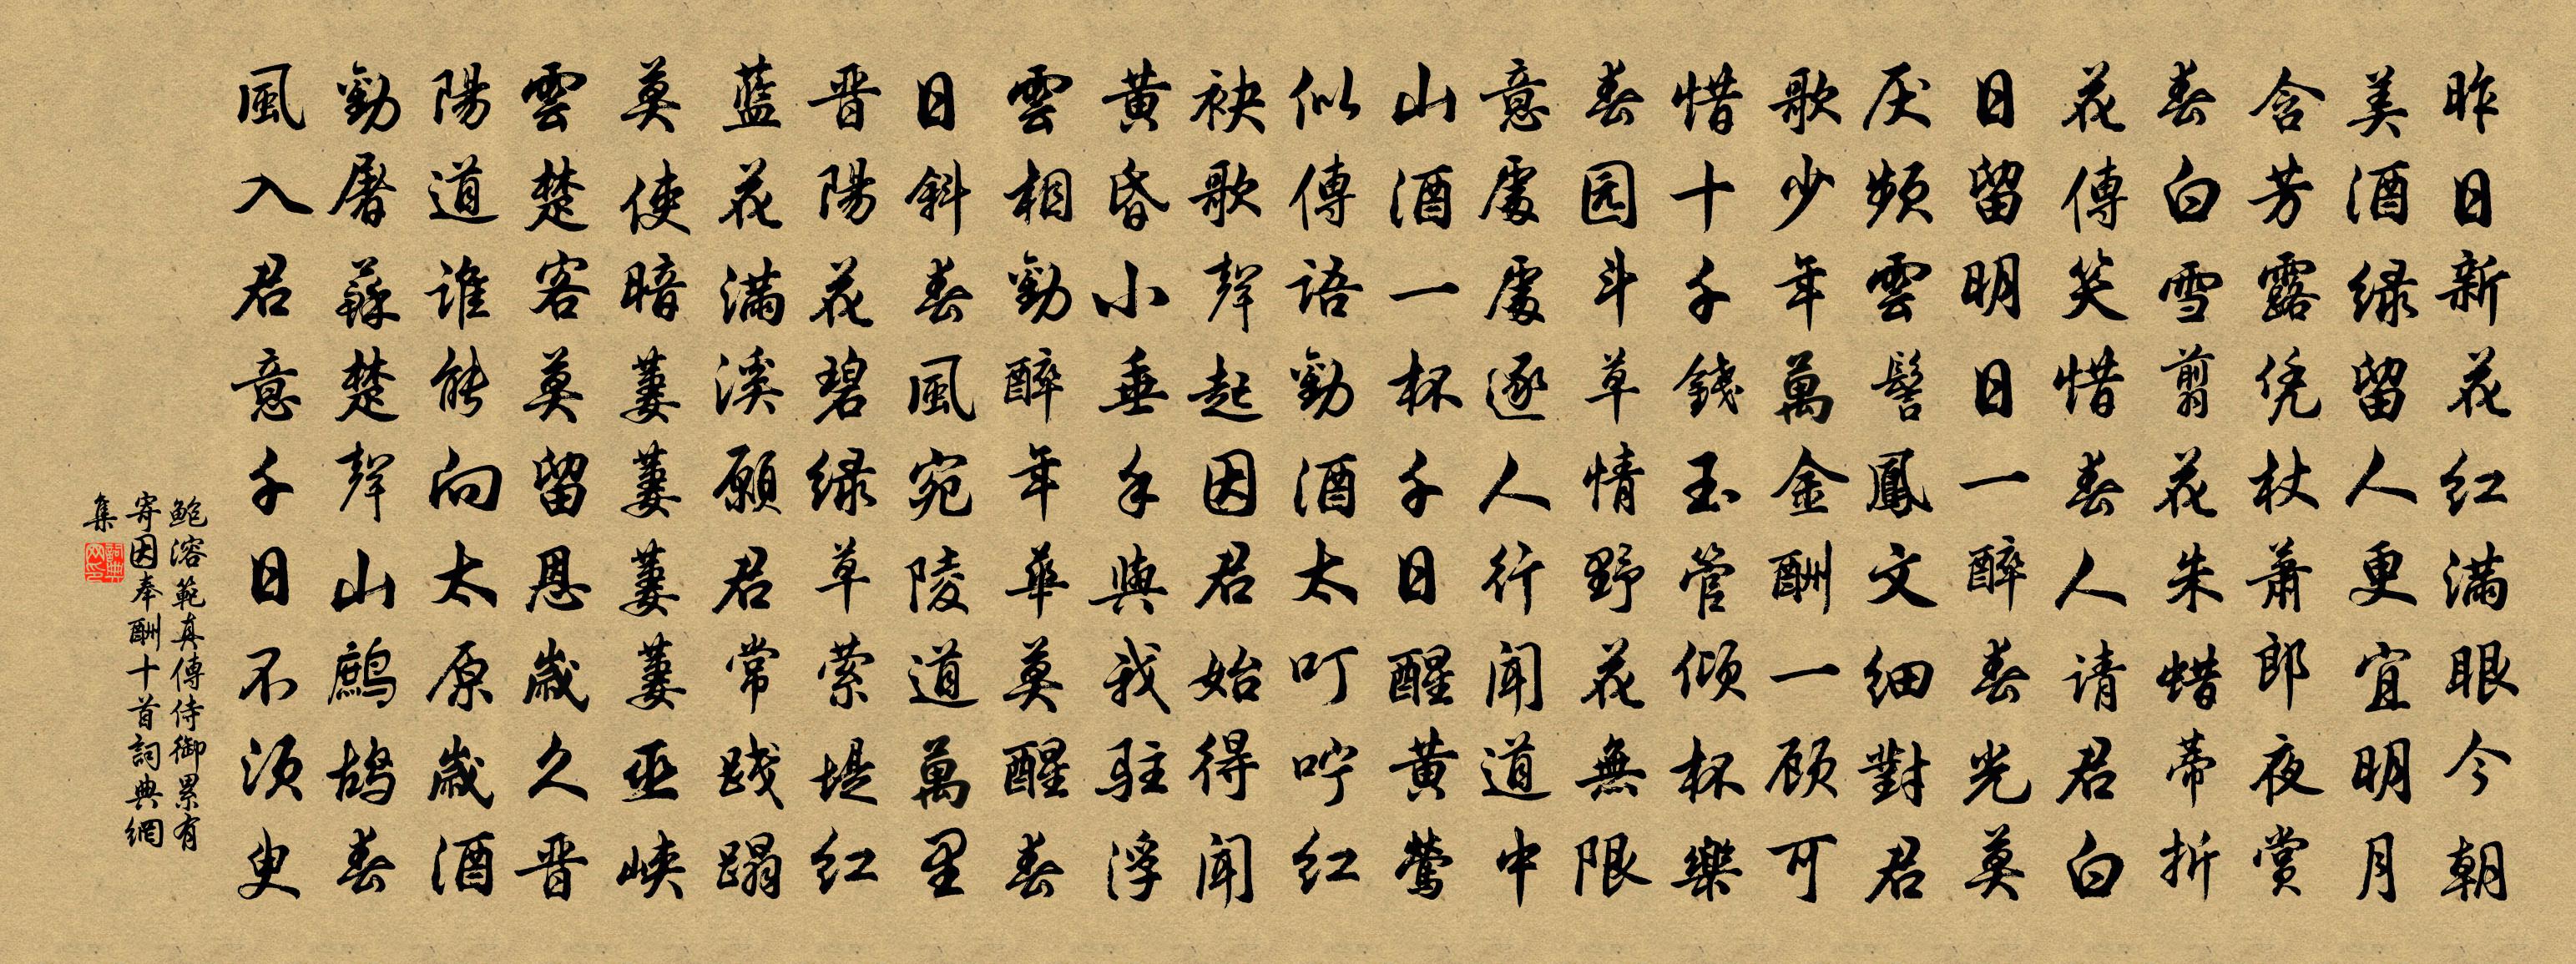 昨日新花红满眼今朝
美酒绿留人更宜明月
含芳露凭杖萧郎夜赏
春白雪剪花朱蜡蒂折
花傳笑惜春人请君白
日留明日一醉春光莫
厌频雲髻鳳文细對君
歌少年萬金酬一顾可
惜十千錢玉管倾杯樂
春园斗草情野花無限
意處處逐人行闻道中
山酒一杯千日醒黄莺
似傳語勸酒太叮咛红
袂歌聲起因君始得闻
黄昏小垂手與我驻浮
雲相勸醉年華莫醒春
日斜春風宛陵道萬里
晋陽花碧绿草萦堤红
藍花满溪願君常践蹋
莫使暗萋萋萋萋巫峡
雲楚客莫留恩歲久晋
陽道谁能向太原歲酒
勸屠蘇楚聲山鷓鸪春
風入君意千日不须臾
鲍溶範真傳侍御累有
寄因奉酬十首詞典網
集
詞典网印